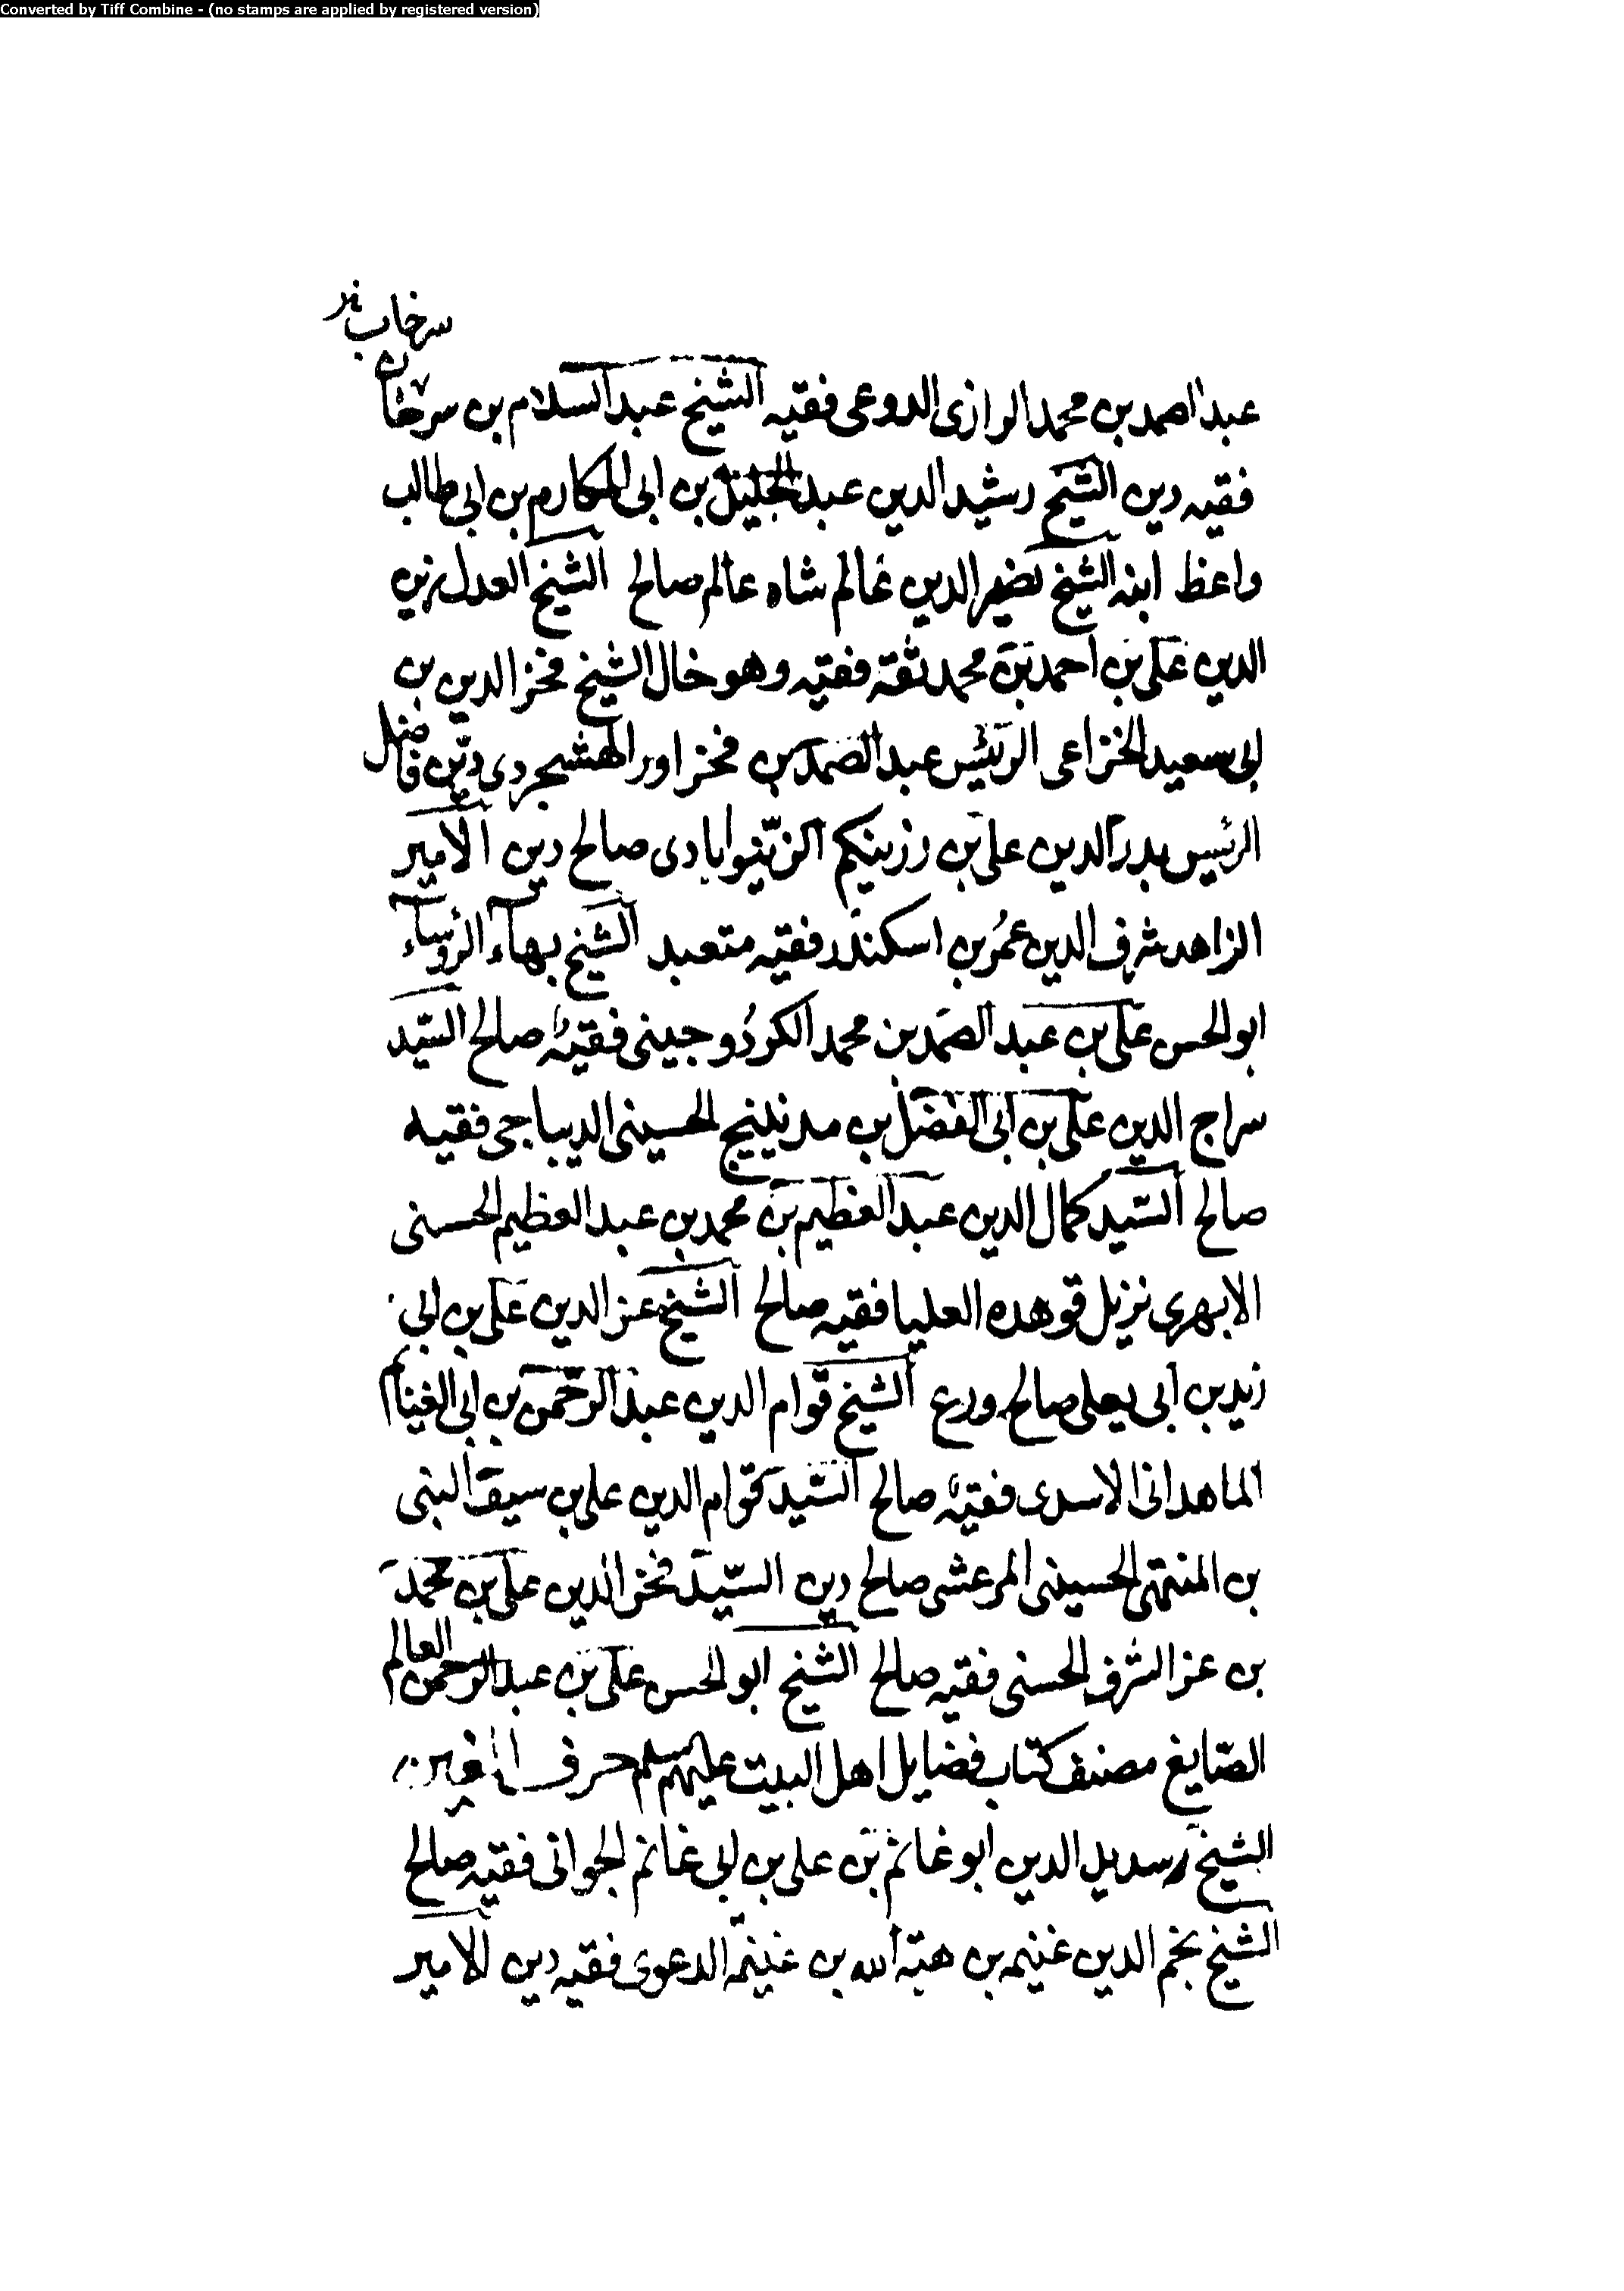 Converted by Tiff Combine - (no stamps are applied by registered version)
سرخاب
عبد الصمد بن محمد الرازى الدوعى فقيه الشيخ عبد السلام بن سرخاب
فقيه دين الشيخ رشيد الدين عبد الجليل بن ابى المكارم بن ابى طالب
واعظ ابنه الشيخ نصير الدين عالم شاه عالم صالح الشيخ العدل زين
الدين على بن احمد بن محمد ثقة فقيه وهو خال الشيخ فخر الدين بن
ابى سعيد الخزاعى الرئيس عبد الصمد بن فخراور الهشجردى دين فاضل
الرئيس بدر الدين على بن رزينكم الزينوابادى صالح دين الامير
الزاهد شرف الدين عمر بن اسكندر فقيه متعبد الشيخ بهاء الرؤساء
ابو الحسن على بن عبد الصمد بن محمد الكردوجينى فقيه صالح السيد
سراج الدين على بن ابى الفضل بن الحسينى الديباجى فقيه
صالح السيد كمال الدين عبد العظيم بن محمد بن عبد العظيم الحسنى
الابهرى نزيل قوهده العليا فقيه صالح الشيخ عز الدين على بن ابى
زيد بن ابى يعلى صالح ورع الشيخ قوام الدين عبد الرحمن بن ابى الغنايم
الماهدانى الاسدى فقيه صالح السيد قوام الدين على بن سيف النبى
بن المنتهى الحسينى المرعشى صالح دين السيد فخر الدين على بن محمد
بن عز الشرف الحسنى فقيه صالح الشيخ ابو الحسن على بن عبد الرحمن العالم
الصايغ مصنف كتاب فضايل اهل البيت عليهم سلم حرف الغين
الشيخ سديد الدين ابو غانم بن على بن ابى غانم الجوانى فقيه صالح
الشيخ نجم الدين غنيمه بن هبة الله بن غنيمة الدعوى فقيه دين الامير